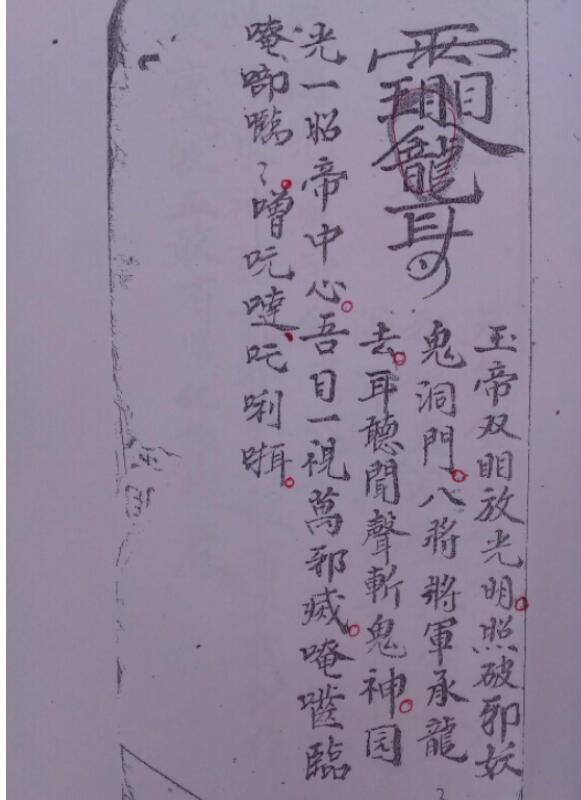 玉帝双眀放光明。照破邪妖
鬼洞門。八將將軍承龍
去。耳聽聞聲斬鬼神。圓
光一照帝中心。吾目一視萬邪滅。唵囄臨
唵唧臨〻。噌吭噠、吒唎㘅。